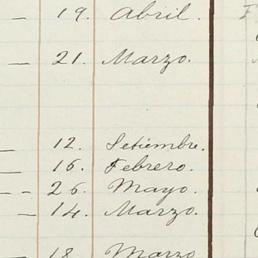 — 19. Abril.
— 21. Marzo.
— 12. Setiembre.
— 16. Febrero.
— 26. Mayo.
— 14. Marzo.
— 18. Marzo